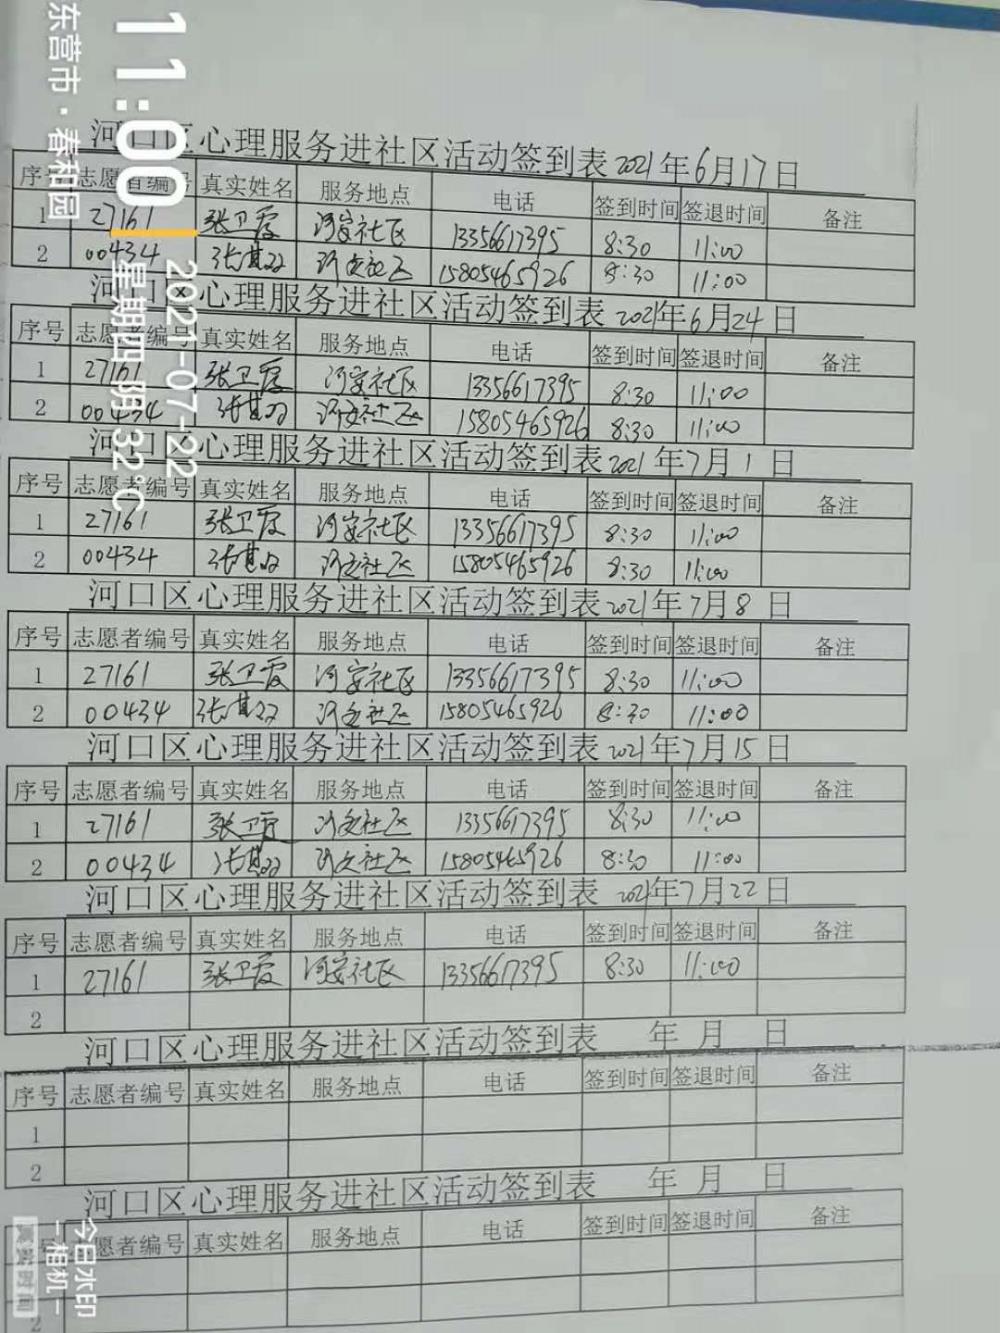 11:00
东营市·春和园
2021-07-22
星期四 阴 32℃
河口区心理服务进社区活动签到表 2021年6月17日
序号 志愿者编号 真实姓名 服务地点 电话 签到时间 签退时间 备注
1 27161 张卫霞 河安社区 13356617395 8:30 11:00
2 00434 张 河安社区 15805465926 8:30 11:00
河口区心理服务进社区活动签到表 2021年6月24日
序号 志愿者编号 真实姓名 服务地点 电话 签到时间 签退时间 备注
1 27161 张卫霞 河安社区 13356617395 8:30 11:00
2 00434 张 河安社区 15805465926 8:30 11:00
河口区心理服务进社区活动签到表 2021年7月1日
序号 志愿者编号 真实姓名 服务地点 电话 签到时间 签退时间 备注
1 27161 张卫霞 河安社区 13356617395 8:30 11:00
2 00434 张 河安社区 15805465926 8:30 11:00
河口区心理服务进社区活动签到表 2021年7月8日
序号 志愿者编号 真实姓名 服务地点 电话 签到时间 签退时间 备注
1 27161 张卫霞 河安社区 13356617395 8:30 11:00
2 00434 张 河安社区 15805465926 8:30 11:00
河口区心理服务进社区活动签到表 2021年7月15日
序号 志愿者编号 真实姓名 服务地点 电话 签到时间 签退时间 备注
1 27161 张卫霞 河安社区 13356617395 8:30 11:00
2 00434 张 河安社区 15805465926 8:30 11:00
河口区心理服务进社区活动签到表 2021年7月22日
序号 志愿者编号 真实姓名 服务地点 电话 签到时间 签退时间 备注
1 27161 张卫霞 河安社区 13356617395 8:30 11:00
2
河口区心理服务进社区活动签到表 年 月 日
序号 志愿者编号 真实姓名 服务地点 电话 签到时间 签退时间 备注
1
2
河口区心理服务进社区活动签到表 年 月 日
号 愿者编号 真实姓名 服务地点 电话 签到时间 签退时间 备注
2
今日水印
-相机-
真实时间